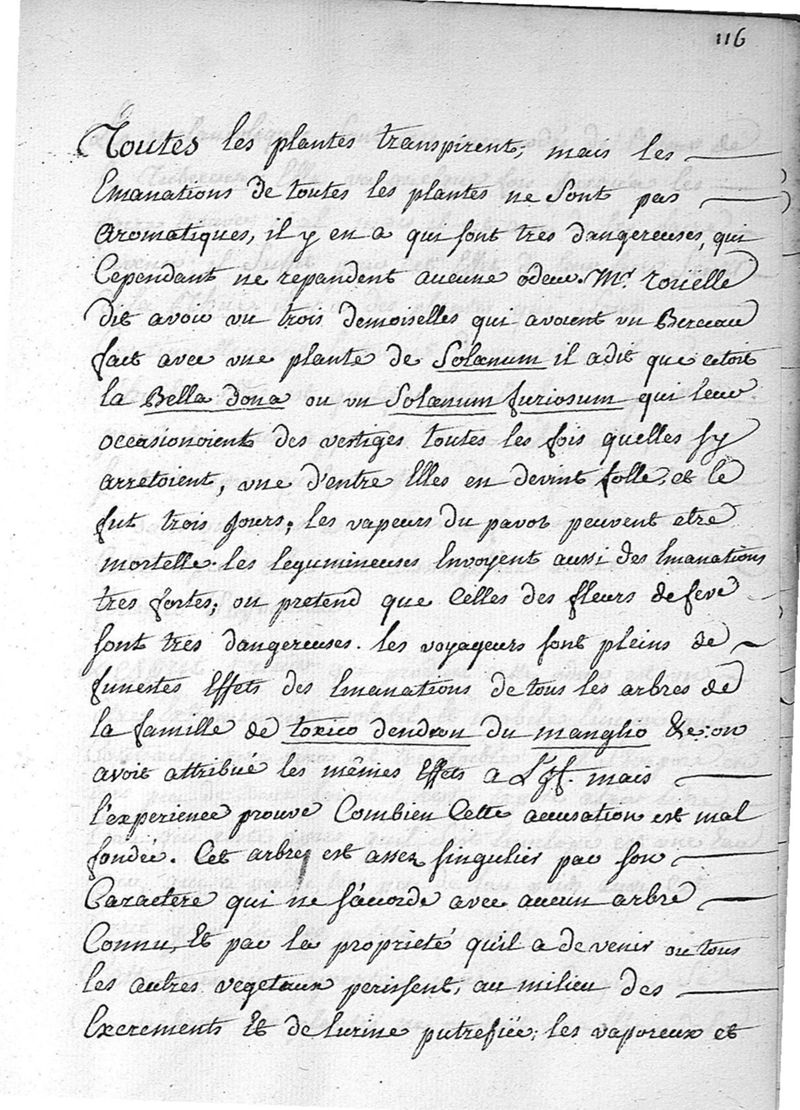 116
Toutes les plantes transpirent, mais les
Emanations de toutes les plantes ne sont pas
aromatiques, il y en a qui sont tres dangereuses, qui
Cependant ne repandent aucune odeur. Mr. roüelle
dit avoir vu trois demoiselles qui avoient vn Berceau
fait avec vne plante de Solanum il a dit que cetoit
la Bella dona ou vn Solanum furiosum qui leur
occasionoient des vertiges toutes les fois quelles sy
arretoient, vne d'entre Elles en devint folle, et le
fut trois jours; les vapeurs du pavot peuvent etre
mortelle. les legumineuses Envoyent aussi des Emanations
tres fortes; on pretend que Celles des fleurs de feve
sont tres dangereuses. les voyageurs sont pleins de
funestes Effets des Emanations de tous les arbres de
la famille de toxico dendron du manglio &c: on
avoit attribué les mêmes Effets a mais
l'experience prouve Combien Cette accusation est mal
fondée. Cet arbre est assez singulier par son
Caractere qui ne s'accorde avec aucun arbre
Connu, Et par la proprieté qu'il a de venir ou tous
les autres vegetaux perissent, au milieu des
Excrements Et de lurine putrefiée; les vaporeux et